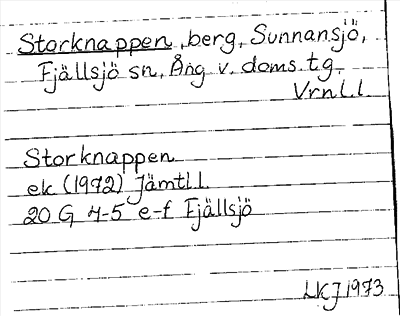 Storknappen, berg, Sunnansjö,
Fjällsjö sn, Ång v. doms. tg.
Vrnl.l.
Storknappen
ek (1972) Jämtl l.
20 G 4-5 e-f Fjällsjö
LKJ 1973